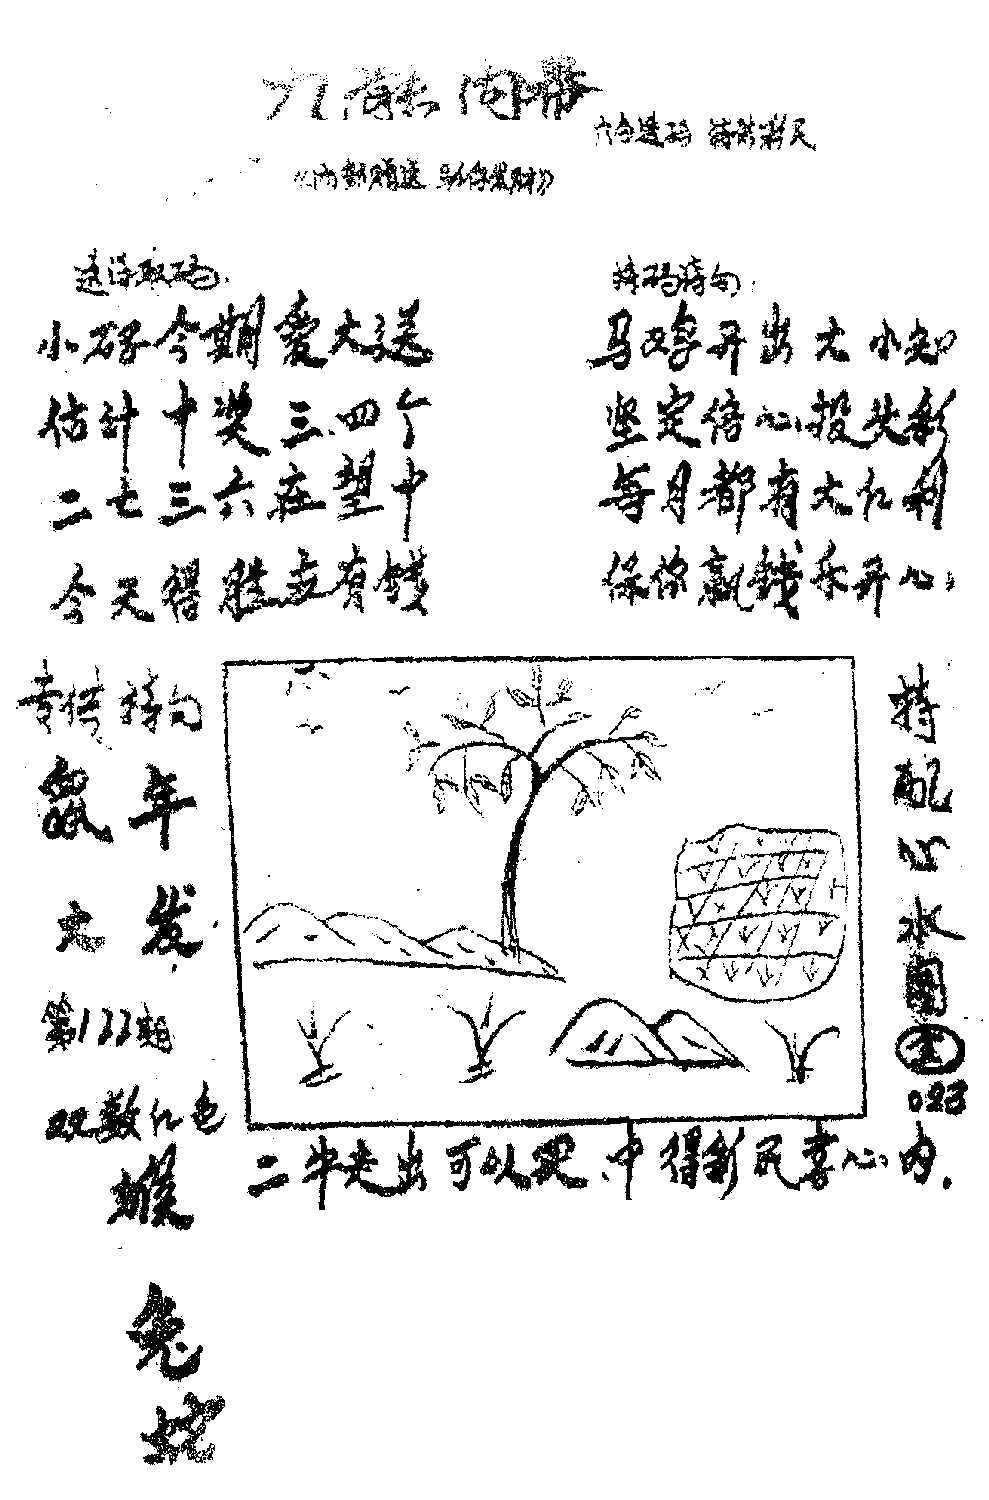 九龍内幕
六合送码
送诗取码
特码诗句
小子今期爱大送
马字开出大小知
估计中奖三四个
坚定信心投好彩
二七三六在望中
每月都有大红利
今天得胜立有钱
保你赢钱乐开心
特句
特配心水图
鼠年
大发
第122期
023
双数红色
二牛走出可以 中得彩民喜心内.
猴
兔
蛇